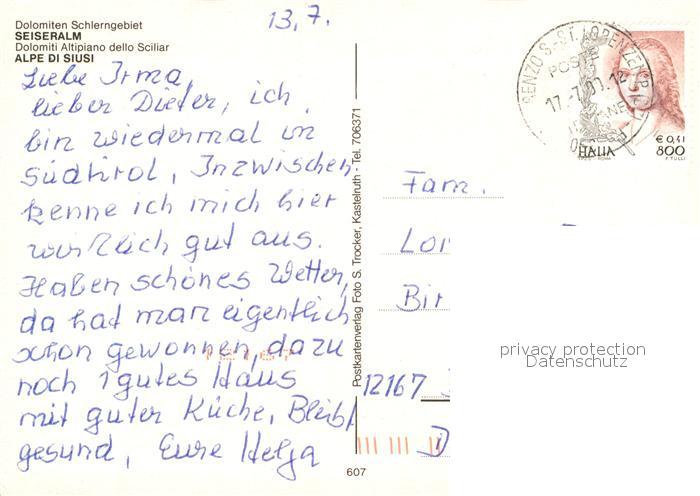 Dolomiten Schlerngebiet
SEISERALM
Dolomiti Altipiano dello Sciliar
ALPE DI SIUSI
13.7.
Liebe Irma,
lieber Dieter, ich
bin wiedermal in
Südtirol, Inzwischen
kenne ich mich hier
wirklich gut aus.
Haben schönes Wetter,
da hat man eigentlich
schon gewonnen, dazu
noch 1 gutes Haus
mit guter Küche, Bleibt
gesund, Eure Helga
Postkartenverlag Foto S. Trocker, Kastelruth - Tel. 706371
607
RENZO S.-ST. LORENZEN
POSTE
17.-7.
ITALIA
€ 0,41
800
F. TULLI
Fam.
Lor
Bir
12167
D
privacy protection
Datenschutz